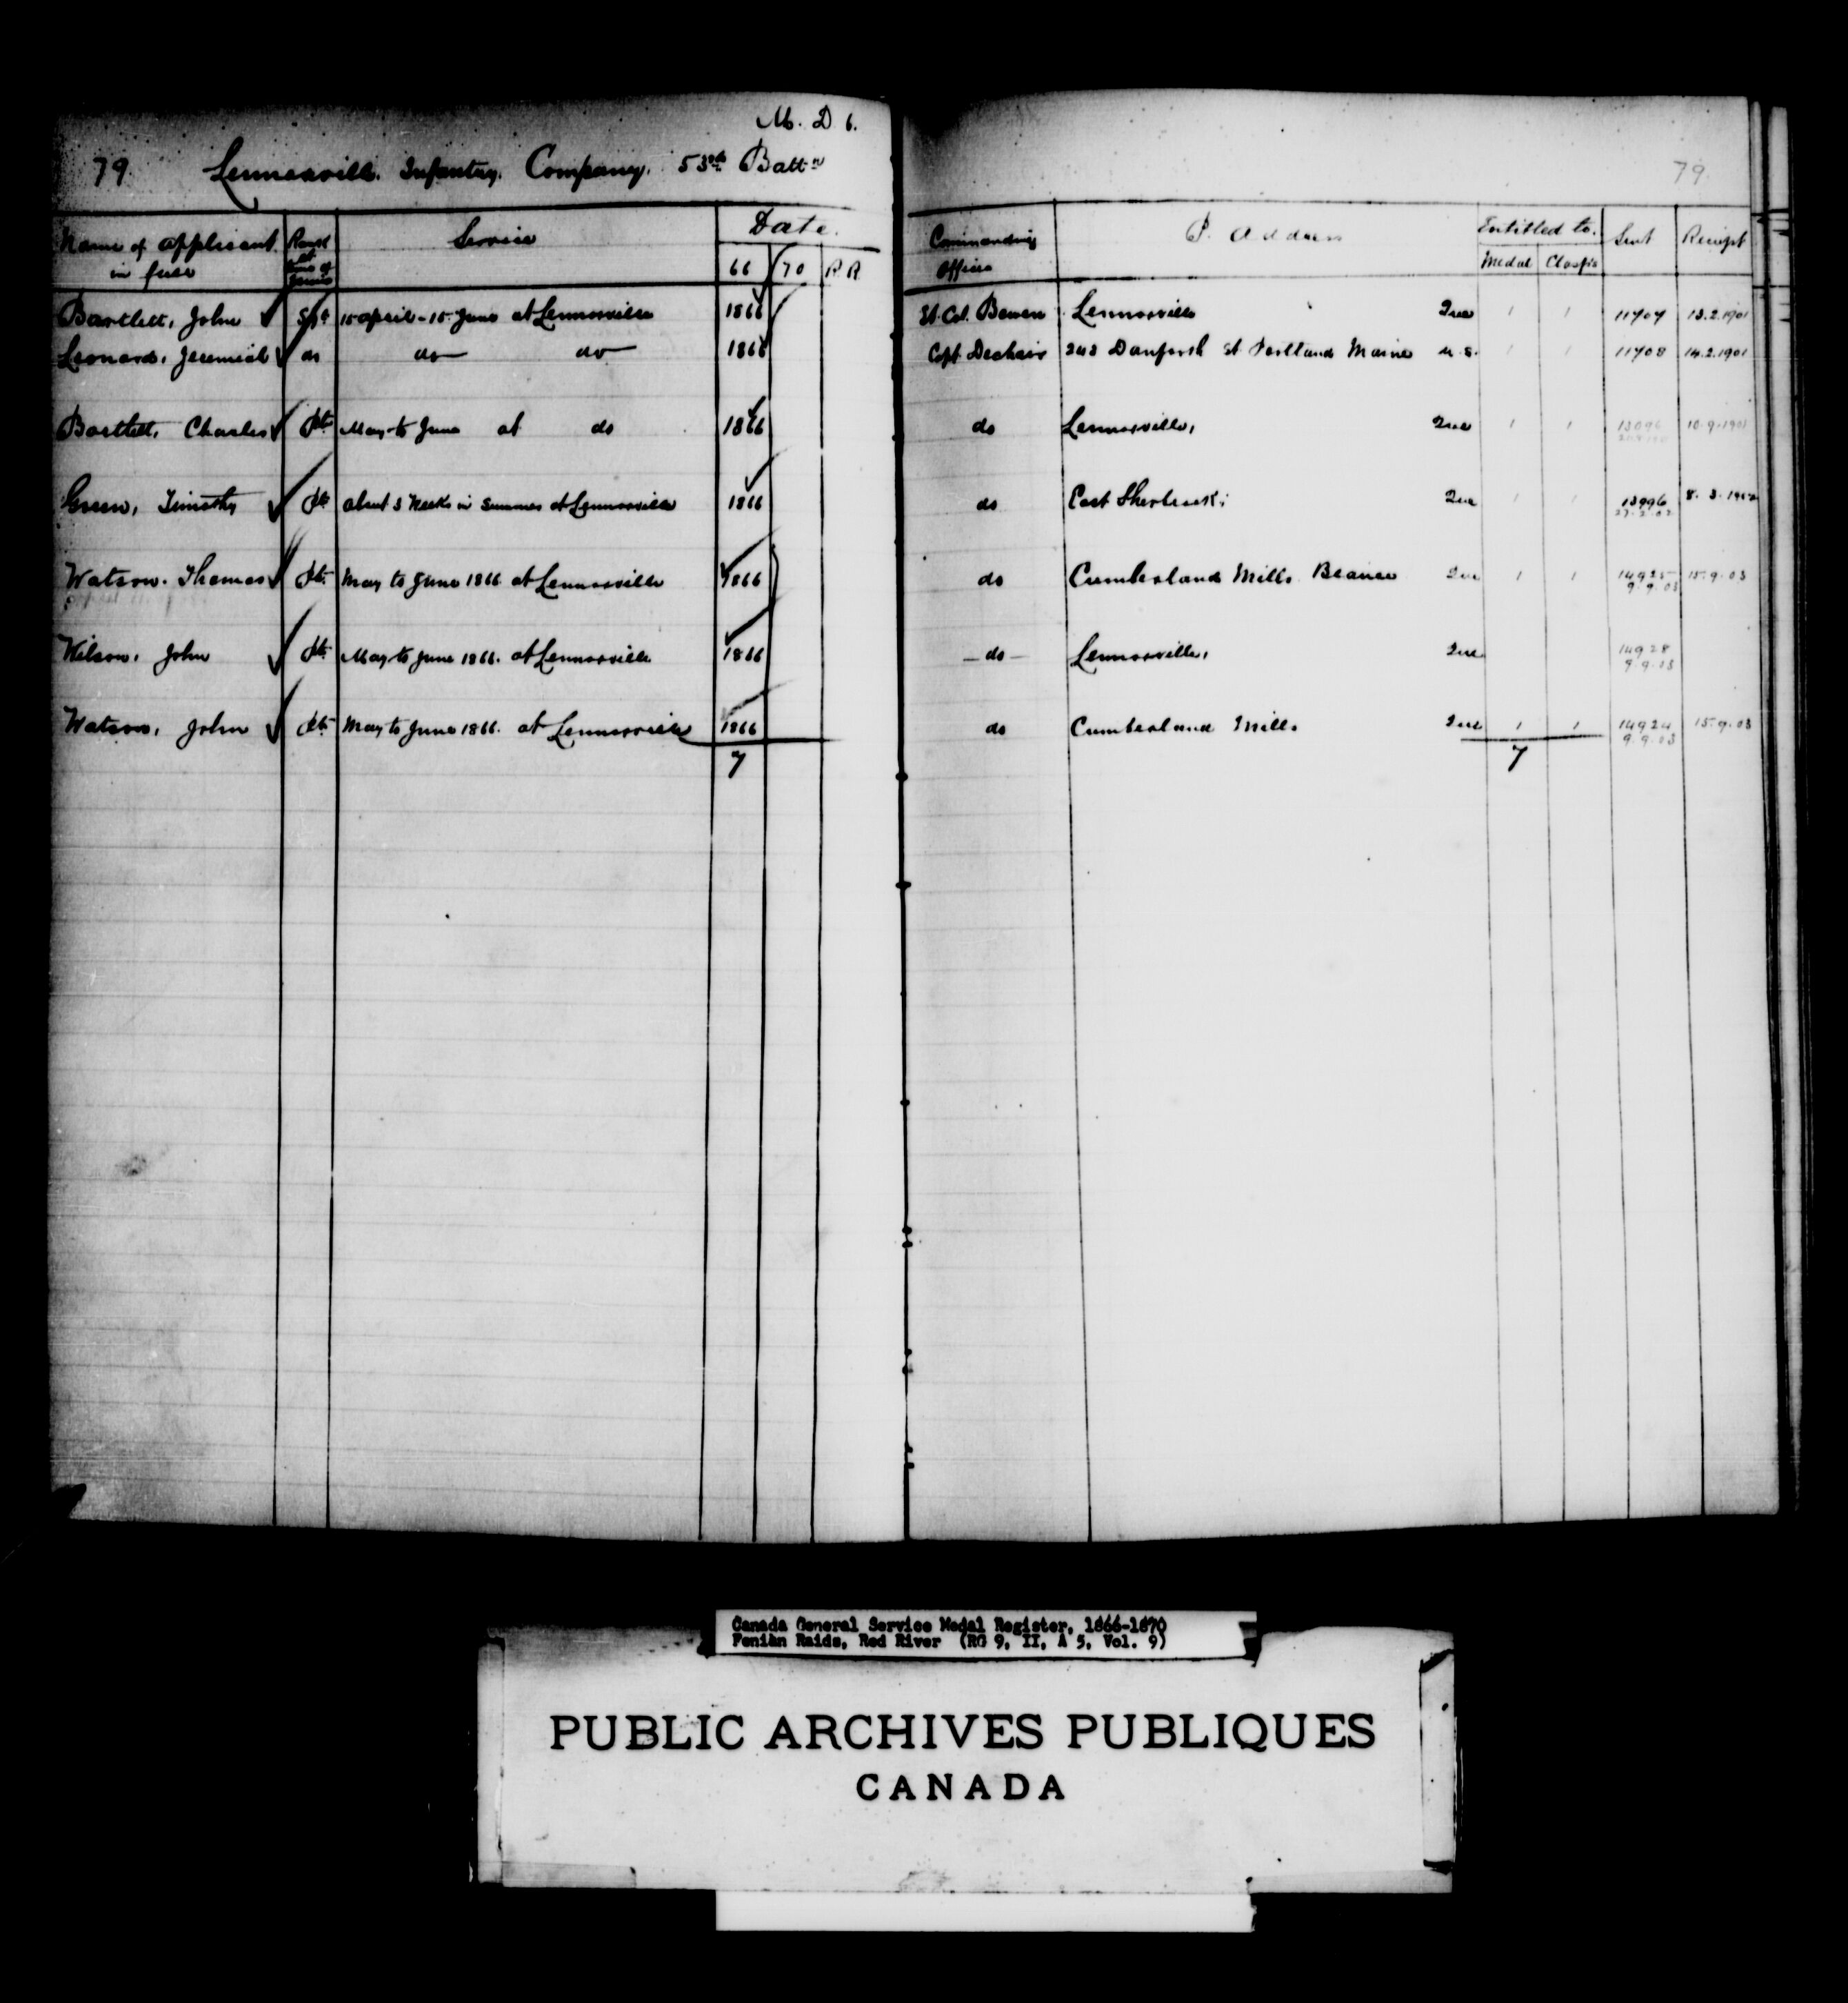 M. D 6.
79. Lennoxville. Infantry. Company. 53rd Battn
79.
Name of applicant in full | Rank at time of Service | Service | Date. 66 | 70 | R R | Commanding Officer | P. Address | Entitled to. Medal | Clasps | Sent | Receipt
Bartlett, John ✓ | Sgt | 15 April - 15 June at Lennoxville | 1866 | Lt. Col. Bowen | Lennoxville Que | 1 | 1 | 11707 | 13.2.1901
Leonard, Jeremiah ✓ | do | do do | 1866 | Capt | 242 Danforth St Portland Maine U.S. | 1 | 1 | 11708 | 14.2.1901
Bartlett, Charles ✓ | Pte | May to June at do | 1866 | do | Lennoxville, Que | 1 | 1 | 13096 | 10.9.1901
Green, Timothy ✓ | Pte | About 3 Weeks in Summer at Lennoxville | 1866 | do | East Sherbrooke Que | 1 | 1 | 13996 27.2.02 | 8.3.1902
Watson. Thomas ✓ | Pte | May to June 1866 at Lennoxville | 1866 | do | Cumberland Mills Beauce Que | 1 | 1 | 14925 9.9.03 | 15.9.03
Wilson, John ✓ | Pte | May to June 1866. at Lennoxville | 1866 | - do - | Lennoxville, Que | 14928 9.9.03
Watson, John ✓ | Pte | May to June 1866. at Lennoxville | 1866 | do | Cumberland Mills Que | 1 | 1 | 14924 9.9.03 | 15.9.03
7 | 7
Canada General Service Medal Register, 1866-1870
Fenian Raids, Red River (RG 9, II, A 5, Vol. 9)
PUBLIC ARCHIVES PUBLIQUES
CANADA